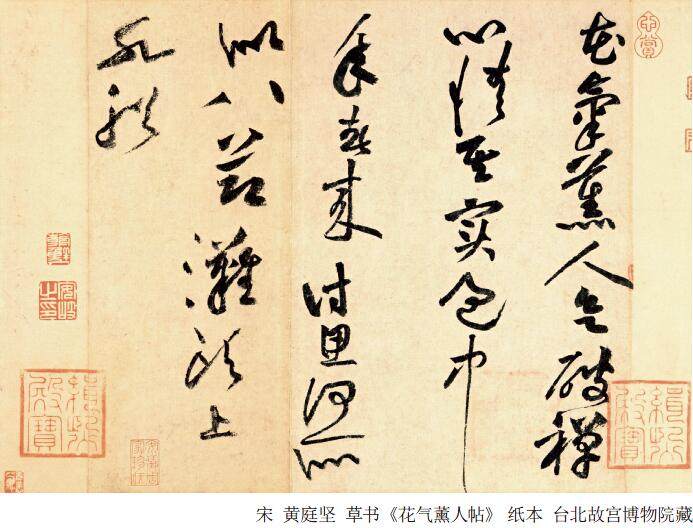 花氣薰人欲破禪
心情其實過中
年春來詩思何所
似八節灘頭上
水船
宋 黄庭坚 草书《花气薰人帖》 纸本 台北故宫博物院藏